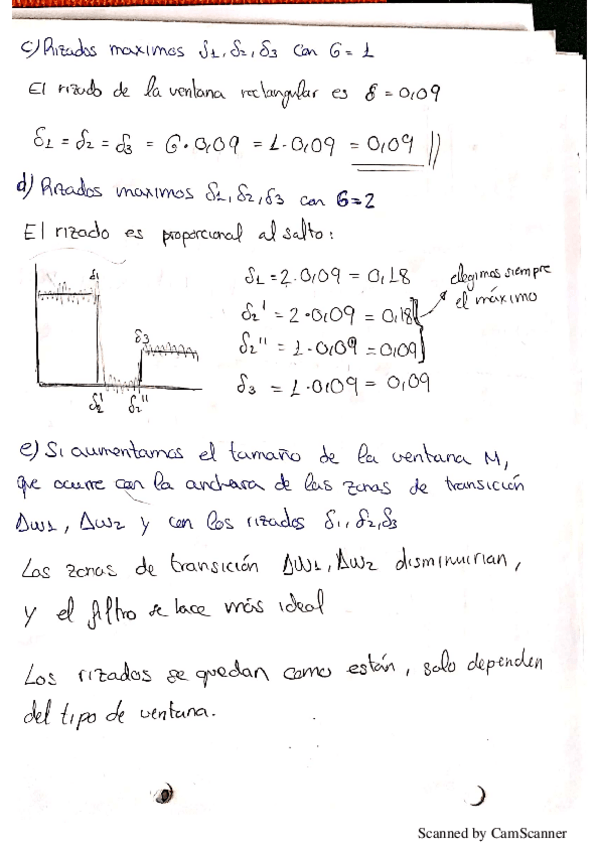 c) Rizados maximos δ1, δ2, δ3 con G = 1
El rizado de la ventana rectangular es δ = 0,09
δ1 = δ2 = δ3 = G · 0,09 = 1 · 0,09 = 0,09 //
d) Rizados maximos δ1, δ2, δ3 con G=2
El rizado es proporcional al salto:
δ1
δ3
δ2' δ2''
δ1 = 2 · 0,09 = 0,18
δ2' = 2 · 0,09 = 0,18
δ2'' = 1 · 0,09 = 0,09
δ3 = 1 · 0,09 = 0,09
elegimos siempre
el máximo
e) Si aumentamos el tamaño de la ventana M,
que ocurre con la anchura de las zonas de transición
Δω1, Δω2 y con los rizados δ1, δ2, δ3
Las zonas de transición Δω1, Δω2 disminuirian,
y el filtro se hace más ideal
Los rizados se quedan como están, solo dependen
del tipo de ventana.
Scanned by CamScanner